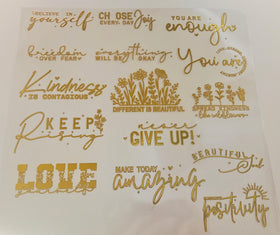 BELIEVE IN
yourself
CHOOSE
EVERY DAY Joy
YOU ARE
enough
freedom
OVER FEAR
everything
WILL BE OKAY
You are
Kindness
IS CONTAGIOUS
DIFFERENT IS BEAUTIFUL
SPREAD KINDNESS
like wildflowers
KEEP
Rising
never
GIVE UP!
LOVE
yourself
MAKE TODAY
amazing
BEAUTIFUL
Girl
positivity